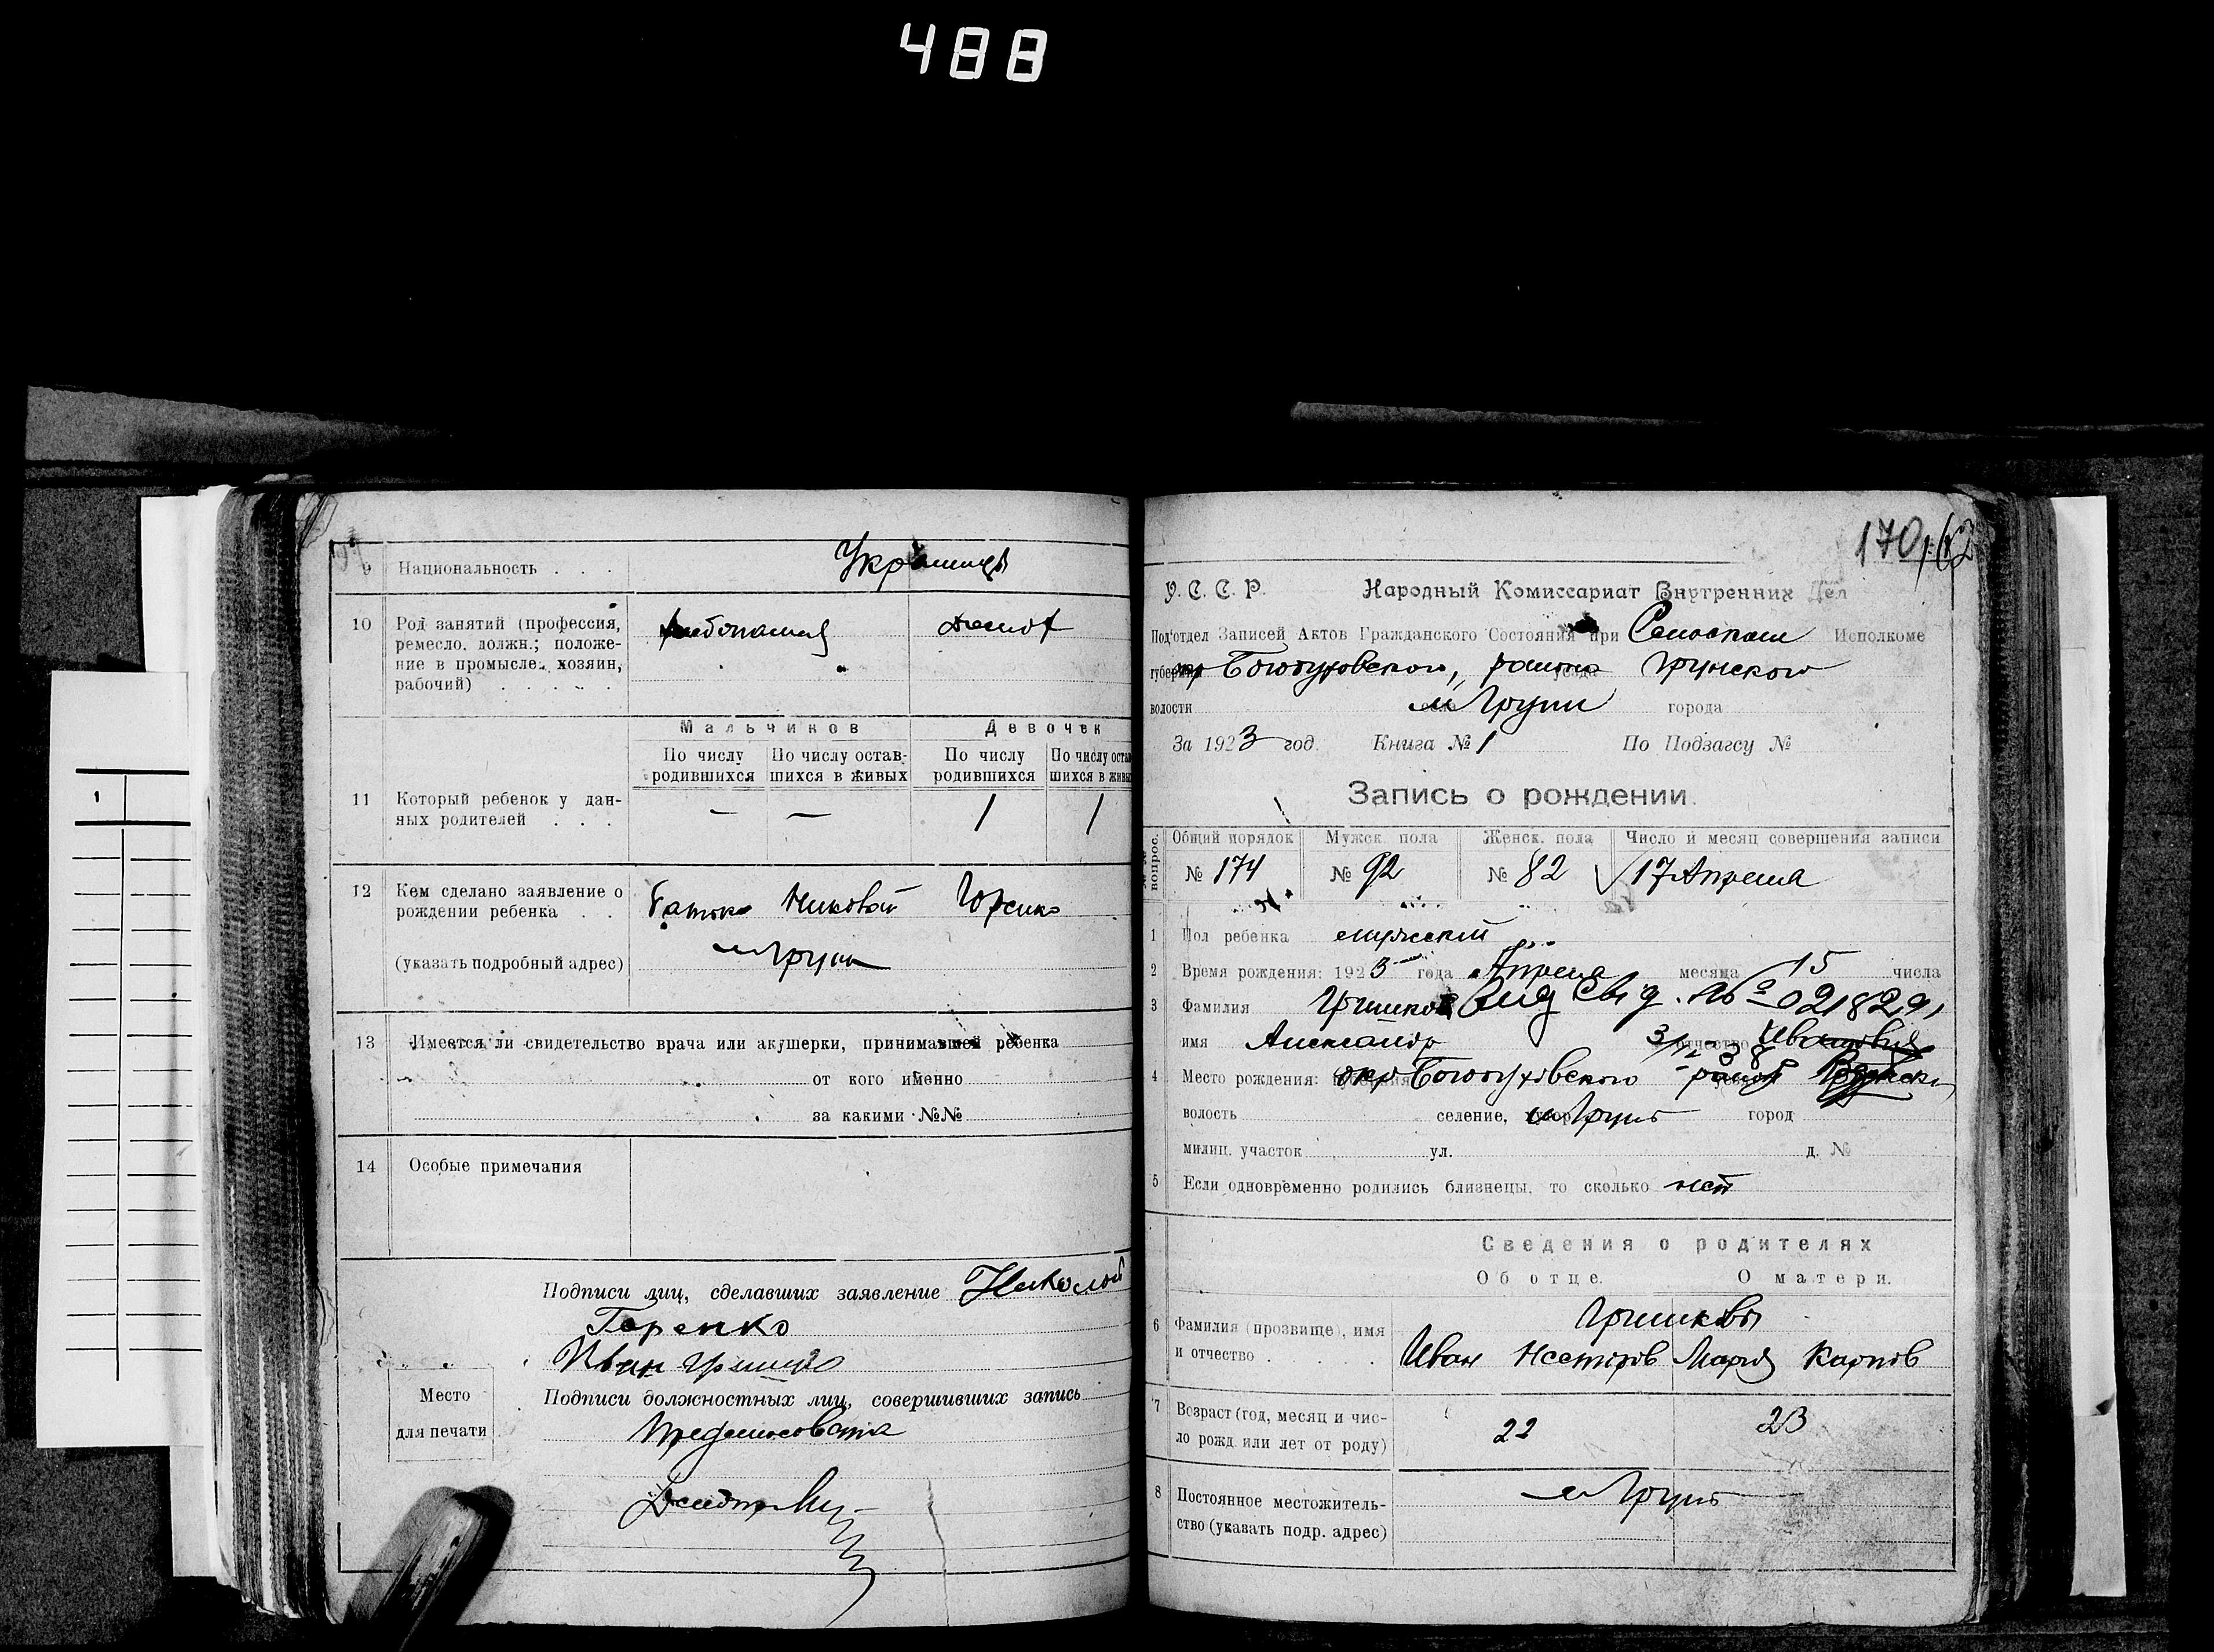 488
9 Национальность . . . Украинцы
10 Род занятий (профессия,
ремесло, должн.; положе-
ние в промысле, хозяин,
рабочий) . . . . .
Мальчиков Девочек
По числу родившихся По числу остав- шихся в живых По числу родившихся По числу остав шихся в живы
11 Который ребенок у дан-
ных родителей . . . — — 1 1
12 Кем сделано заявление о
рождении ребенка . . батько
(указать подробный адрес) м Грунь
13 Имеется ли свидетельство врача или акушерки, принимавшей ребенка
от кого именно
за какими №№
14 Особые примечания
Подписи лиц, сделавших заявление Николай
Иван Гришко
Место
для печати
Подписи должностных лиц, совершивших запись
170 162
У. С. С. Р. Народный Комиссариат Внутренних Дел
Под'отдел Записей Актов Гражданского Состояния при Исполкоме
губернии окр Богодуховского, уезда района Грунского
волости село м Грунь города
За 1923 год. Книга № 1 По Подзагсу №
Запись о рождении.
№№ вопрос. Общий порядок Мужск. пола Женск. пола Число и месяц совершения записи
№ 174 № 92 № 82 17 Апреля
1 Пол ребенка мужской
2 Время рождения: 1923 года Апреля месяца 15 числа
3 Фамилия Гришко Вид Свід. № 021829
имя Александр отчество Иванович
3/XI-38
4 Место рождения: окр Богодуховского район Грунски
волость селение, м Грунь город
милиц. участок ул. д. №
5 Если одновременно родились близнецы, то сколько нет
Сведения о родителях
Об отце. О матери.
6 Фамилия (прозвище), имя
и отчество . . . Гришковы
Иван Нестеров Мария Карпов
7 Возраст (год, месяц и чис-
ло рожд. или лет от роду) 22 23
8 Постоянное местожитель-
ство (указать подр. адрес) м Грунь
1